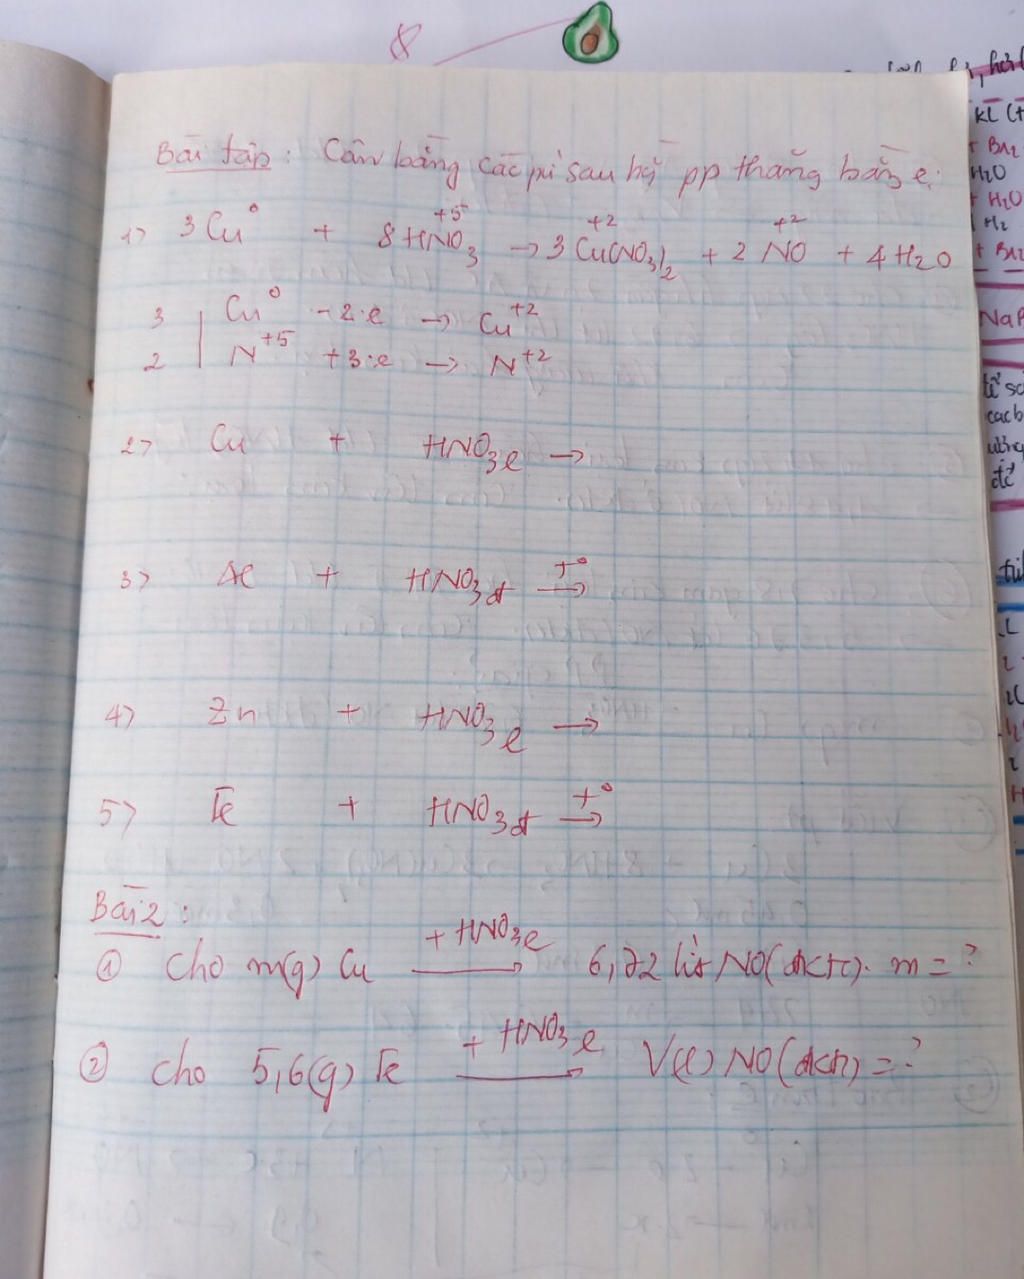 8
Bài tập : Cân bằng các pứ sau bg̀ pp thăng bằng e:
1) 3 Cu⁰ + 8 HN⁺⁵O₃ → 3 Cu⁺²(NO₃)₂ + 2 N⁺²O + 4 H₂O
3 | Cu⁰ - 2.e → Cu⁺²
2 | N⁺⁵ + 3.e → N⁺²
2) Cu + HNO₃ l →
3) Al + HNO₃ đ t⁰ →
4) Zn + HNO₃ l →
5) Fe + HNO₃ đ t⁰ →
Bài 2 :
① Cho m(g) Cu + HNO₃ l → 6,72 lít NO (đktc). m = ?
② Cho 5,6(g) Fe + HNO₃ l → V(l) NO (đktc) = ?
KL
+ Br₂
H₂O
+ H₂O
H₂
+ Br₂